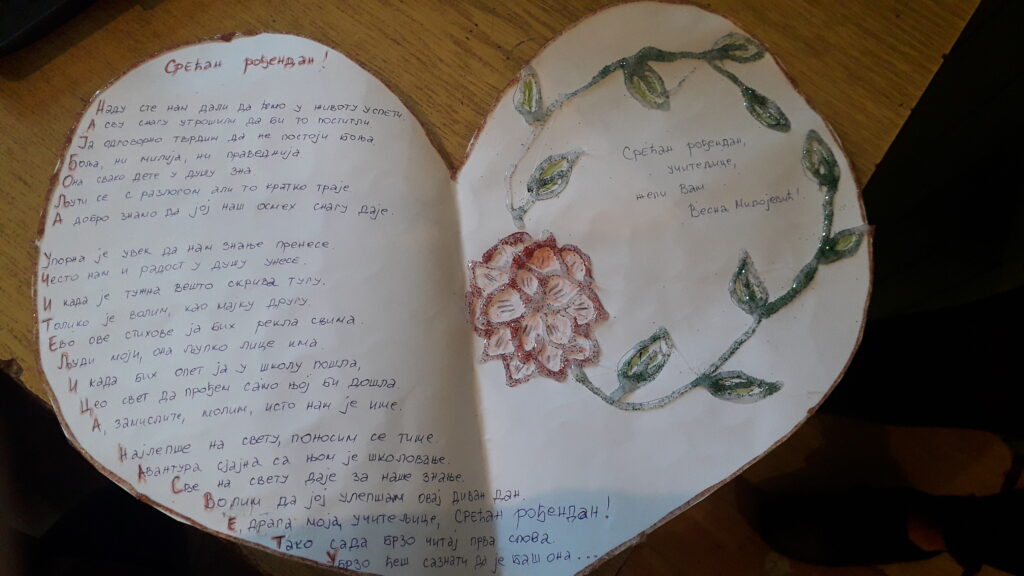 Срећан рођендан!
Наду сте нам дали да ћемо у животу успети,
А сву снагу утрошили да би то постигли
Ја одговорно тврдим да не постоји боља
Боља, ни милија, ни праведнија
Она свако дете у душу зна
Љути се с разлогом али то кратко траје
А добро знамо да јој наш осмех снагу даје.
Упорна је увек да нам знање пренесе.
Често нам и радост у душу унесе.
И када је тужна вешто скрива тугу.
Толико је волим, као мајку другу.
Ево ове стихове ја бих рекла свима.
Људи моји, она љупко лице има.
И када бих опет ја у школу пошла,
Цео свет да прођем само њој би дошла.
А, замислите, молим, исто нам је име.
Најлепше на свету, поносим се тиме.
Авантура сјајна са њом је школовање.
Све на свету даје за наше знање.
Волим да јој улепшам овај диван дан.
Е, драга моја, учитељице, срећан рођендан!
Тако сада брзо читај прва слова.
Убрзо ћеш сазнати да је баш она...
Срећан рођендан,
учитељице,
жели Вам
Весна Милојевић!